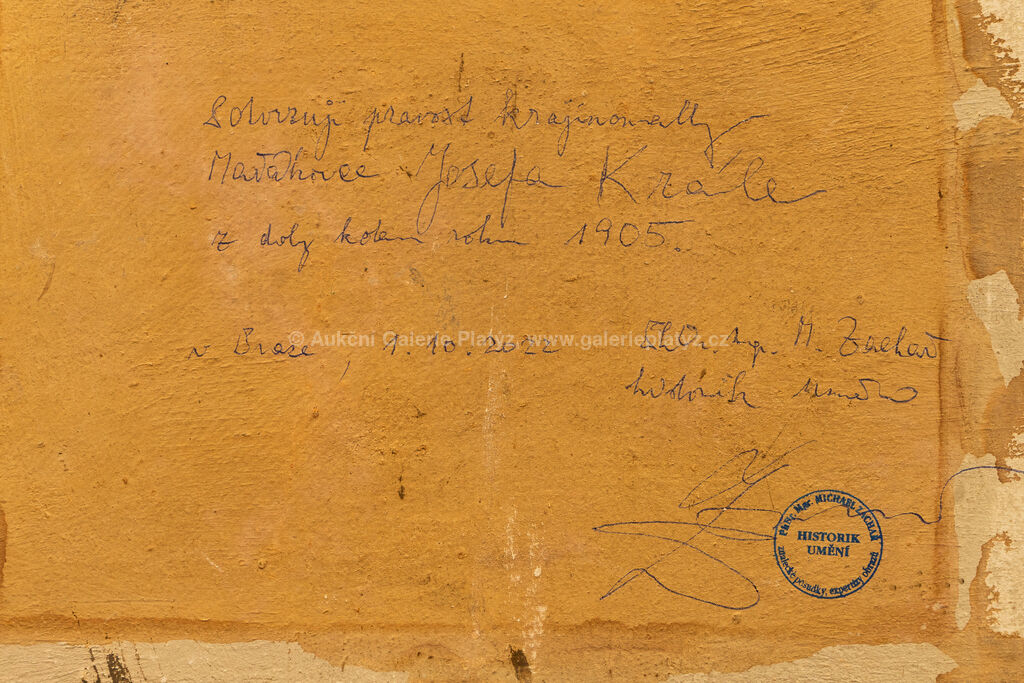 Potvrzuji pravost krajinomalby
Mařákovce Josefa Krále
z doby kolem roku 1905.
v Praze, 1.10.2022
PhDr. Mgr. M. Zachař
historik umění
© Aukční Galerie Platýz, www.galerieplatyz.cz
PhDr. Mgr. MICHAEL ZACHAŘ
HISTORIK
UMĚNÍ
znalecké posudky, expertízy obrazů